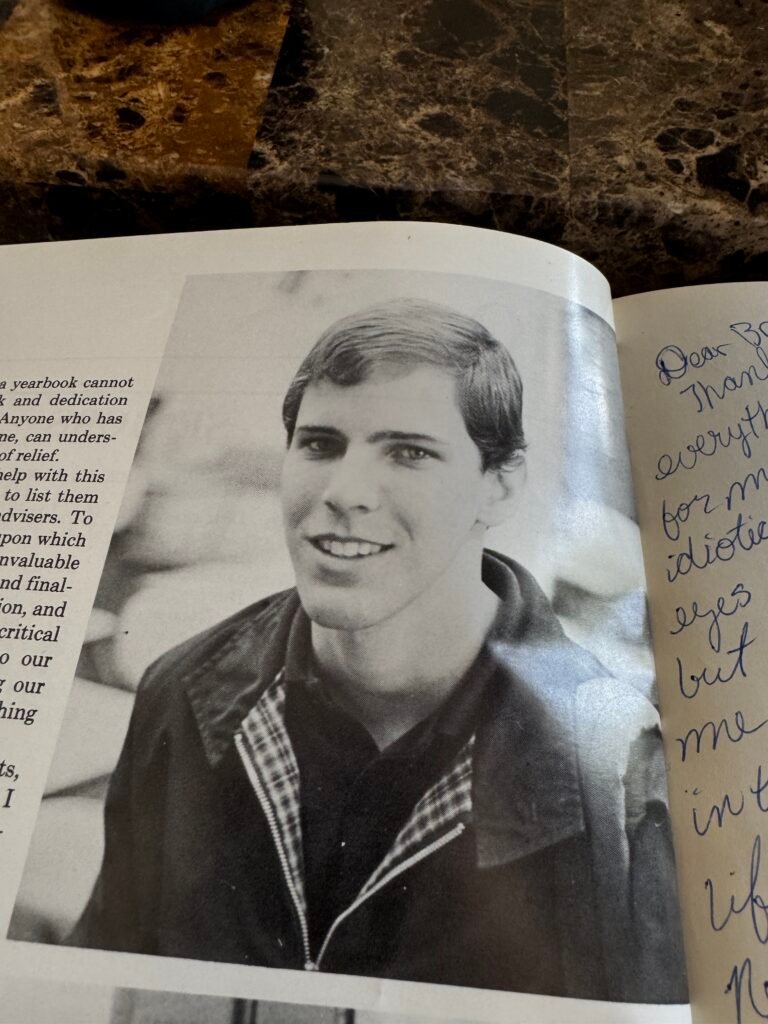 a yearbook cannot
k and dedication
Anyone who has
ne, can unders-
of relief.
help with this
to list them
dvisers. To
upon which
nvaluable
nd final-
ion, and
critical
o our
g our
hing
ts,
I
Dear Br
Than
everyth
for m
idiotic
eyes
but
me
in t
Lif